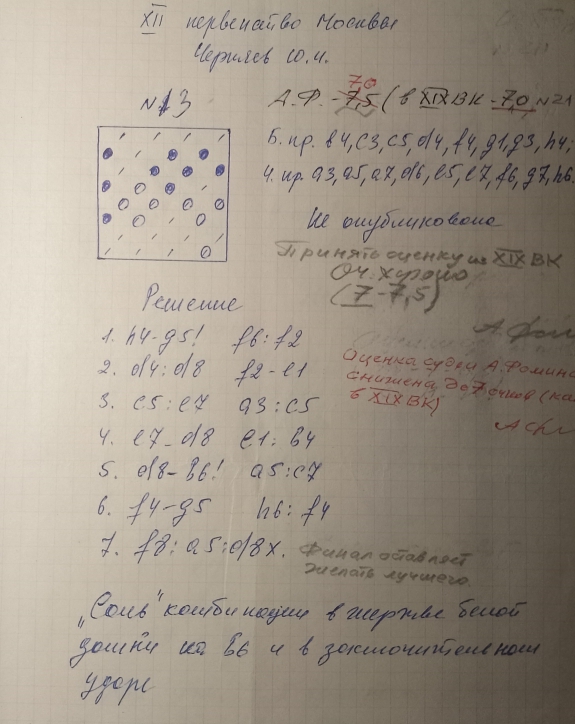 XII первенство Москвы
Черняев Ю.Н.
N 13
7,0
А.Ф. - 7,5 (в XIX ВК - 7,0 N21
Б. пр. b4, c3, c5, d4, f4, g1, g3, h4;
Ч. пр. a3, a5, a7, d6, e5, e7, f6, g7, h6.
Не опубликована
Принять оценку из XIX ВК
Оч. хорошо
(7-7,5)
А. Фом
Решение
1. h4-g5! f6:f2
2. d4:d8 f2-e1
3. c5:e7 a3:c5
4. e7-d8 e1:b4
5. d8-b6! a5:c7
6. f4-g5 h6:f4
7. f8:a5:d8x.
Оценка судьи А.Фомина
снижена до 7 очков (как
в XIX ВК)
Финал оставляет
желать лучшего.
„Соль" комбинации в жертве белой
дамки на b6 и в заключительном
ударе